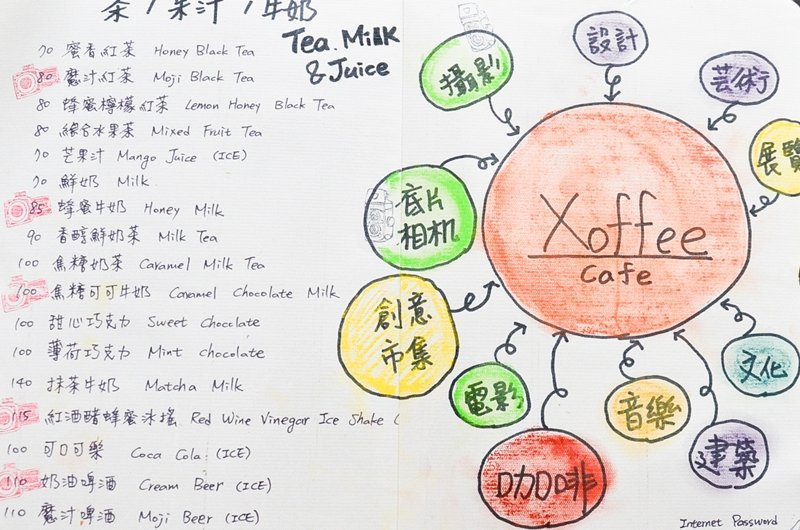 茶 / 果汁 / 牛奶
Tea. Milk
& Juice
70 蜜香紅茶 Honey Black Tea
80 魔汁紅茶 Moji Black Tea
80 蜂蜜檸檬紅茶 Lemon Honey Black Tea
80 綜合水果茶 Mixed Fruit Tea
70 芒果汁 Mango Juice (ICE)
70 鮮奶 Milk
85 蜂蜜牛奶 Honey Milk
90 香醇鮮奶茶 Milk Tea
100 焦糖奶茶 Caramel Milk Tea
100 焦糖可可牛奶 Caramel Chocolate Milk
100 甜心巧克力 Sweet Chocolate
100 薄荷巧克力 Mint chocolate
140 抹茶牛奶 Matcha Milk
115 紅酒醋蜂蜜冰搖 Red Wine Vinegar Ice Shake (
100 可口可樂 Coca Cola (ICE)
110 奶油啤酒 Cream Beer (ICE)
110 魔汁啤酒 Moji Beer (ICE)
Xoffee
Cafe
攝影
設計
芸術
展覽
底片
相机
創意
市集
電影
咖啡
音樂
建築
文化
Internet Password